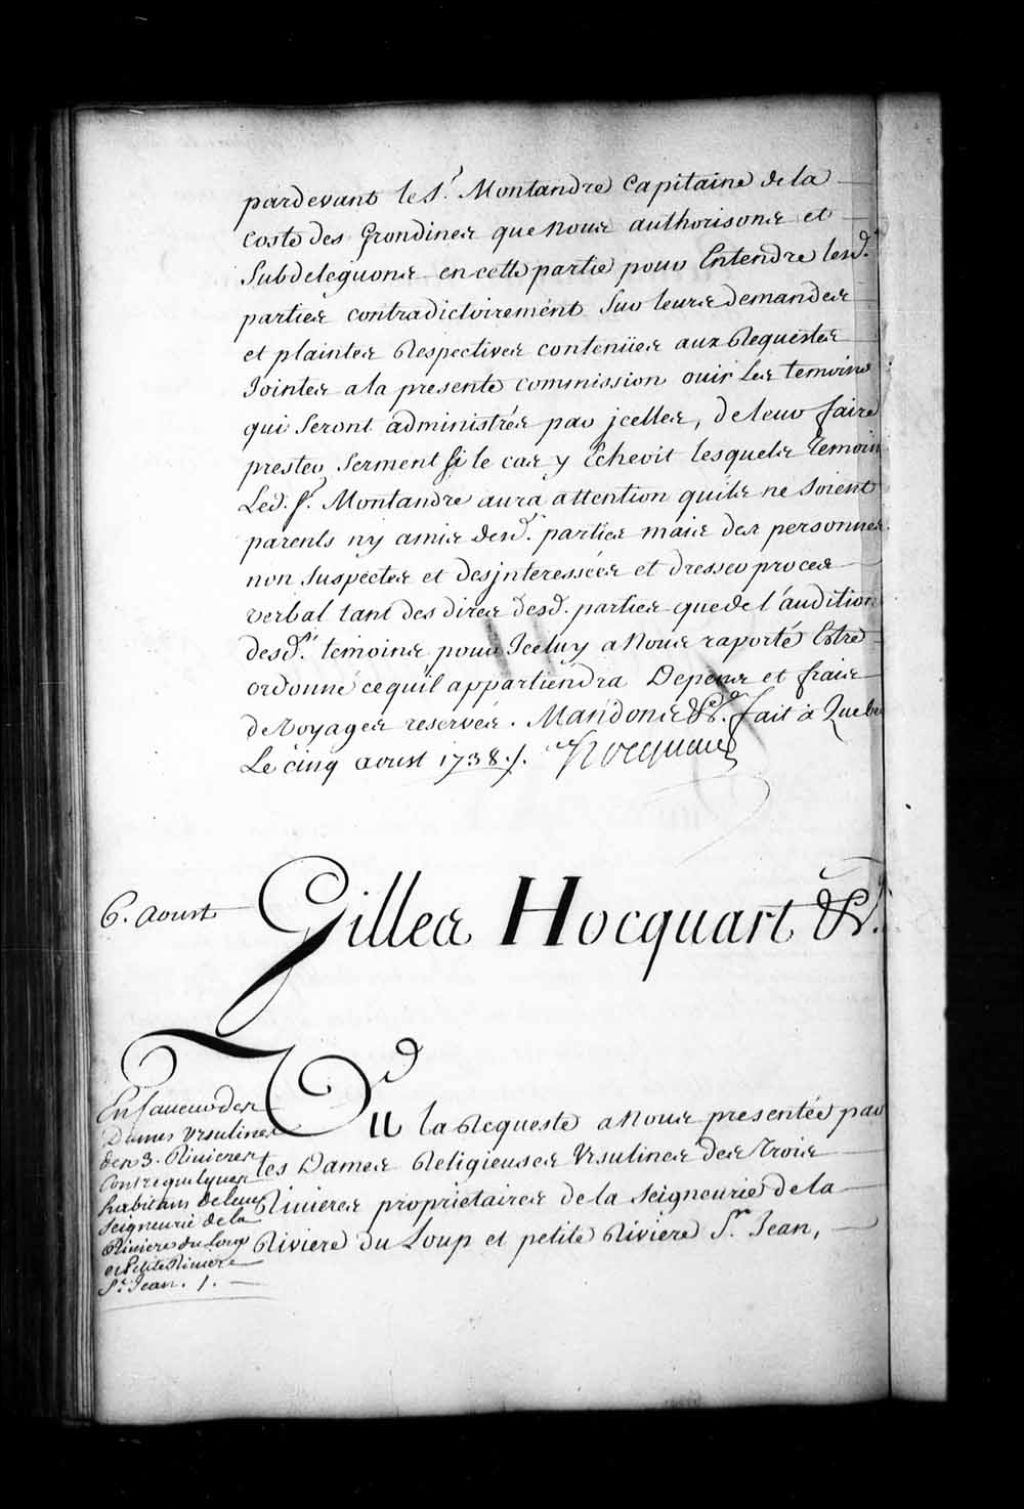 pardevant le Sr. Montandre Capitaine de la
Coste des Grondines que nous authorisons et
Subdeleguons en cette partie pour Entendre lesd.
parties contradictoirement Sur leurs demandes
et plaintes Respectives contenües aux Requestes
Jointes a la presente commission ouir les temoins
qui Seront administrés par jcelles, de leur faire
prester Serment Si le cas y Echeoit lesquels temoins
Led. Sr. Montandre aura attention quils ne Soient
parents ny amis desd. parties mais des personnes
non Suspectes et desjnteressées et dresser proces
verbal tant des dires desd. parties que de l'audition
desd. temoins pour Iceluy a Nous raporté Estre
ordonné ce quil appartiendra Depens et frais
de Voyages reservés. Mandons &a. fait à Quebec
Le cinq aoust 1738 ./. Hocquart
6. aoust
Gilles Hocquart &a.
Vu la Requeste a Nous presentée par
les Dames Religieuses Ursulines des Trois
Rivieres proprietaires de la Seigneurie de la
Riviere du Loup et petite Riviere St. Jean,
En faveur des
Dames Ursulines
des 3. Rivieres
Contre quelques
habitans de leur
Seigneurie de la
Riviere du Loup
et Petite Riviere
St. Jean. /.